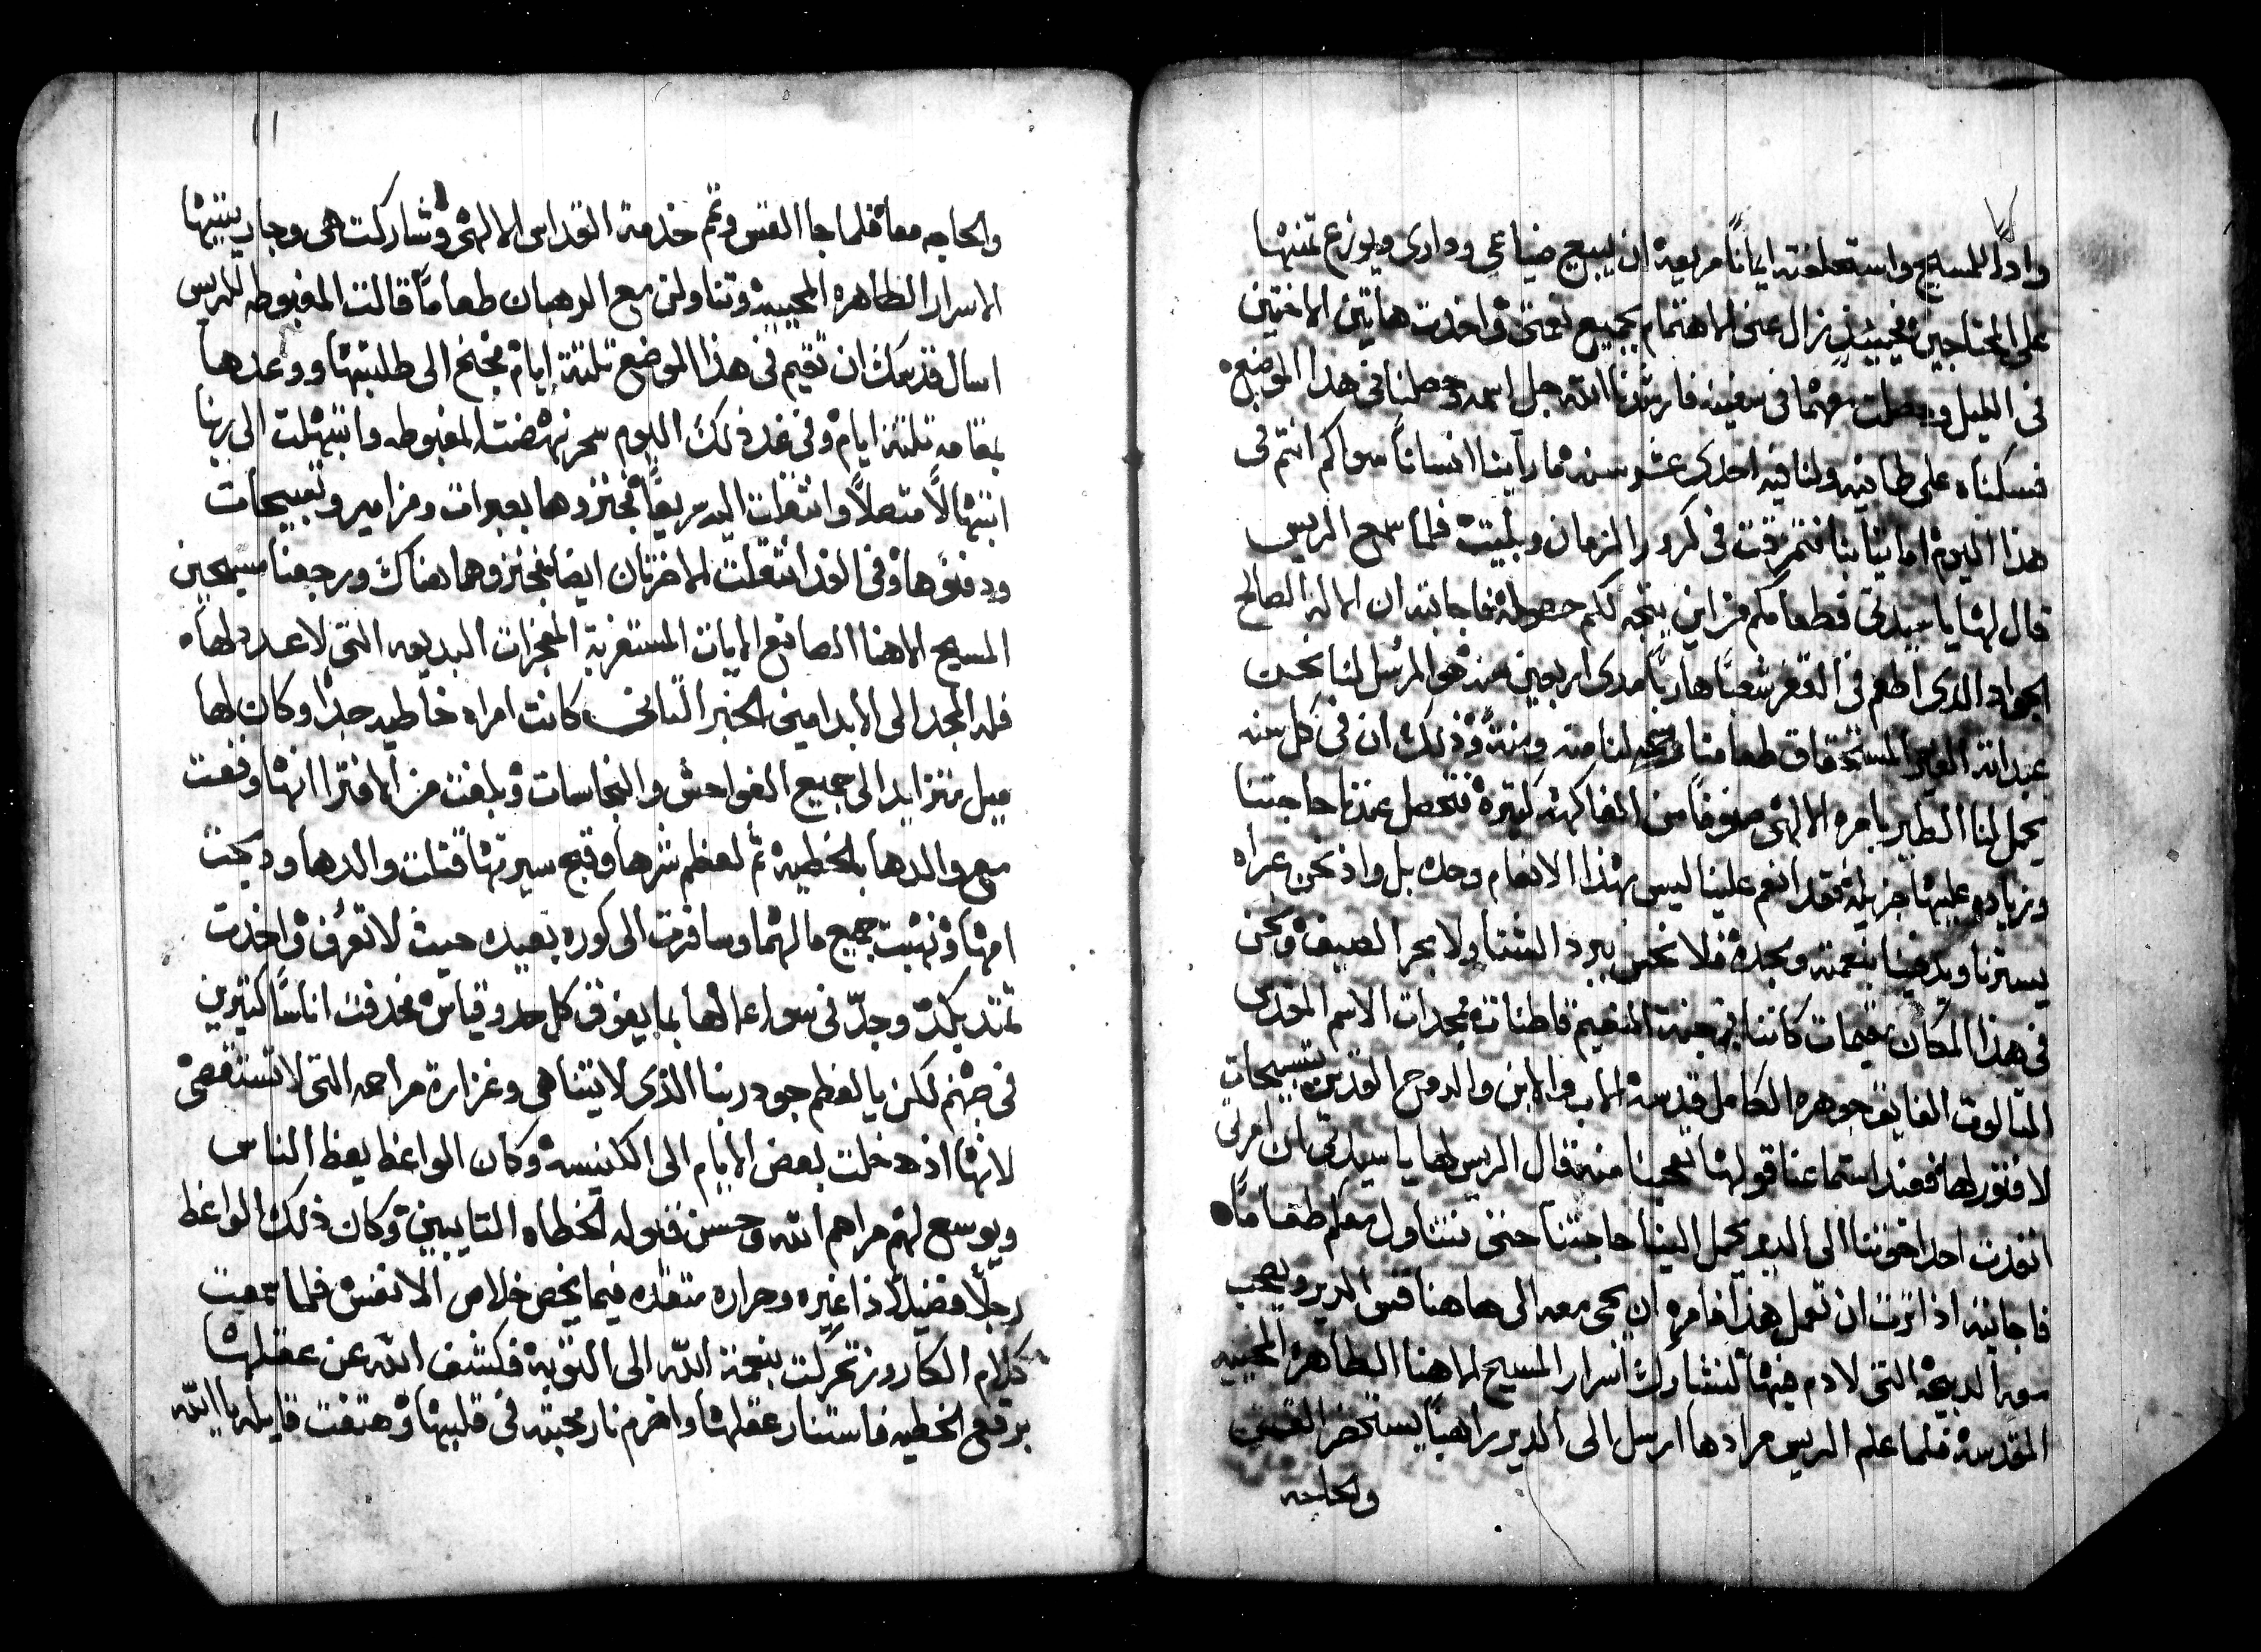 واداً للمسيح واستحلفته ايماناً مريعه ان يبيع ضياعي ودارى ويوزع ثمنها
على المحتاجين فحينيذٍ زال عنى الاهتمام بجميع نعمتى واخذت هاتين الاختين
فى الليل وحصلت معهما فى سفينه فارشدنا الله جل اسمه وحصلنا فى هذا الموضع
فسكناه على طافيه ولنا فيه احدى عشر سنه ما راينا انساناً سواكم انتم فى
هذا اليوم اما ثيابنا فتمزقت فى كرور الزمان وبليت فلما سمع الريس
قال لها يا سيدتى فطعامكم من اين يتجه لكم حصوله فاجابته ان الاله الصالح
الجواد الذى اطعم فى القفر شعباً هارباً مدى اربعين سنه هو المرسل لنا نحن
عبداته الغير المستحقات طعامنا لنا منه وذلك ان فى كل سنه
يحمل لنا الطير بامره الالهى صنوفاً من الفاكهه كثيره فتحصل عندنا حاجتنا
وزياده عليها جزيله فقد انعم علينا ليس بهذا الانعام وحده بل واذ نحن عراه
يسترنا ويدفينا بنعمته ومجده فلا نحس ببرد الشتا ولا بحر الصيف ونحن
فى هذا المكان مقيمات كاننا فى جنة النعيم قاطنات ممجدات الاسم القدسى
الثالوث الفايق جوهره الكامل قدسه الاب والابن والروح القدس بتسبيحات
لا فتور لها فعند استماعنا قولها تعجبنا منه قال الريس لها يا سيدتى ان امرتى
انفذت احد اخوتنا الى الدير يحمل الينا حاجتنا حتى نتناول معكم طعاماً
فاجابته اذا اثرت ان تعمل هذا فامره ان يجى معه الى هاهنا قس الدير ويصحب
معه الدبيحه التى لا دم فيها لنشارك اسرار المسيح الاهنا الطاهره المحييه
المقدسه فلما علم الريس مرادها ارسل الى الدير راهباً يستحضر القس
والحاجه
١١
والحاجه معاً فلما جا القس وتم خدمة القداس الالهى وشاركت هى وجاريتيها
الاسرار الطاهره المحييه وتناولن مع الرهبان طعاماً قالت المغبوطه للريس
اسال قدسك ان تقيم فى هذا الموضع ثلثة ايام فجنح الى طلبتها ووعدها
بمقامه ثلثة ايام وفى غد ذلك اليوم سحر نهضت المغبوطه وابتهلت الى ربها
ابتهالاً متصلاً وانتقلت اليه سريعاً فجنزوها بعبرات ومزامير وتسبيحات
ودفنوها وفى الغد انتقلت الاخرتان ايضا فجنزوهما هناك ورجعنا مسبحين
المسيح الاهنا الصانع الايات المستغربة المعجزات البديعه التى لا عدد لها
فله المجد الى الابد امين الخبر الثانى كانت امراه خاطيه جداً وكان لها
ميل متزايد الى جميع الفواحش والنجاسات وبلغت من الافترا انها وقعت
مع والدها بالخطيه ثم لعظم شرها وقبح سيرتها قتلت والدها ودبحت
امها ونهبت جميع مالهما وسافرت الى كوره بعيده حيث لا تعرف واخذت
تمتد بكدٍ وجدٍّ فى سوا اعمالها بما يفوق كل حد وقياس فحدفت اناساً كثيرين
فى جهنم لكن يا لعظم جود ربنا الذى لا يتناهى وغزارة مراحمه التى لا تستقصى
لانها اذ دخلت بعض الايام الى الكنيسه وكان الواعظ يعظ الناس
ويوسع لهم مراهم الله وحسن قبوله الخطاه التايبين وكان ذلك الواعظ
رجلاً فضيلاً ذا غيره وحراره متقده فيما يخص خلاص الانفس فلما سمعت
كلام الكاروز تحركت بنعمة الله الى التوبه فكشف الله عن عقلها
برقع الخطيه فاستنار عقلها واضرم نار محبته فى قلبها وهتفت قايله يا الله